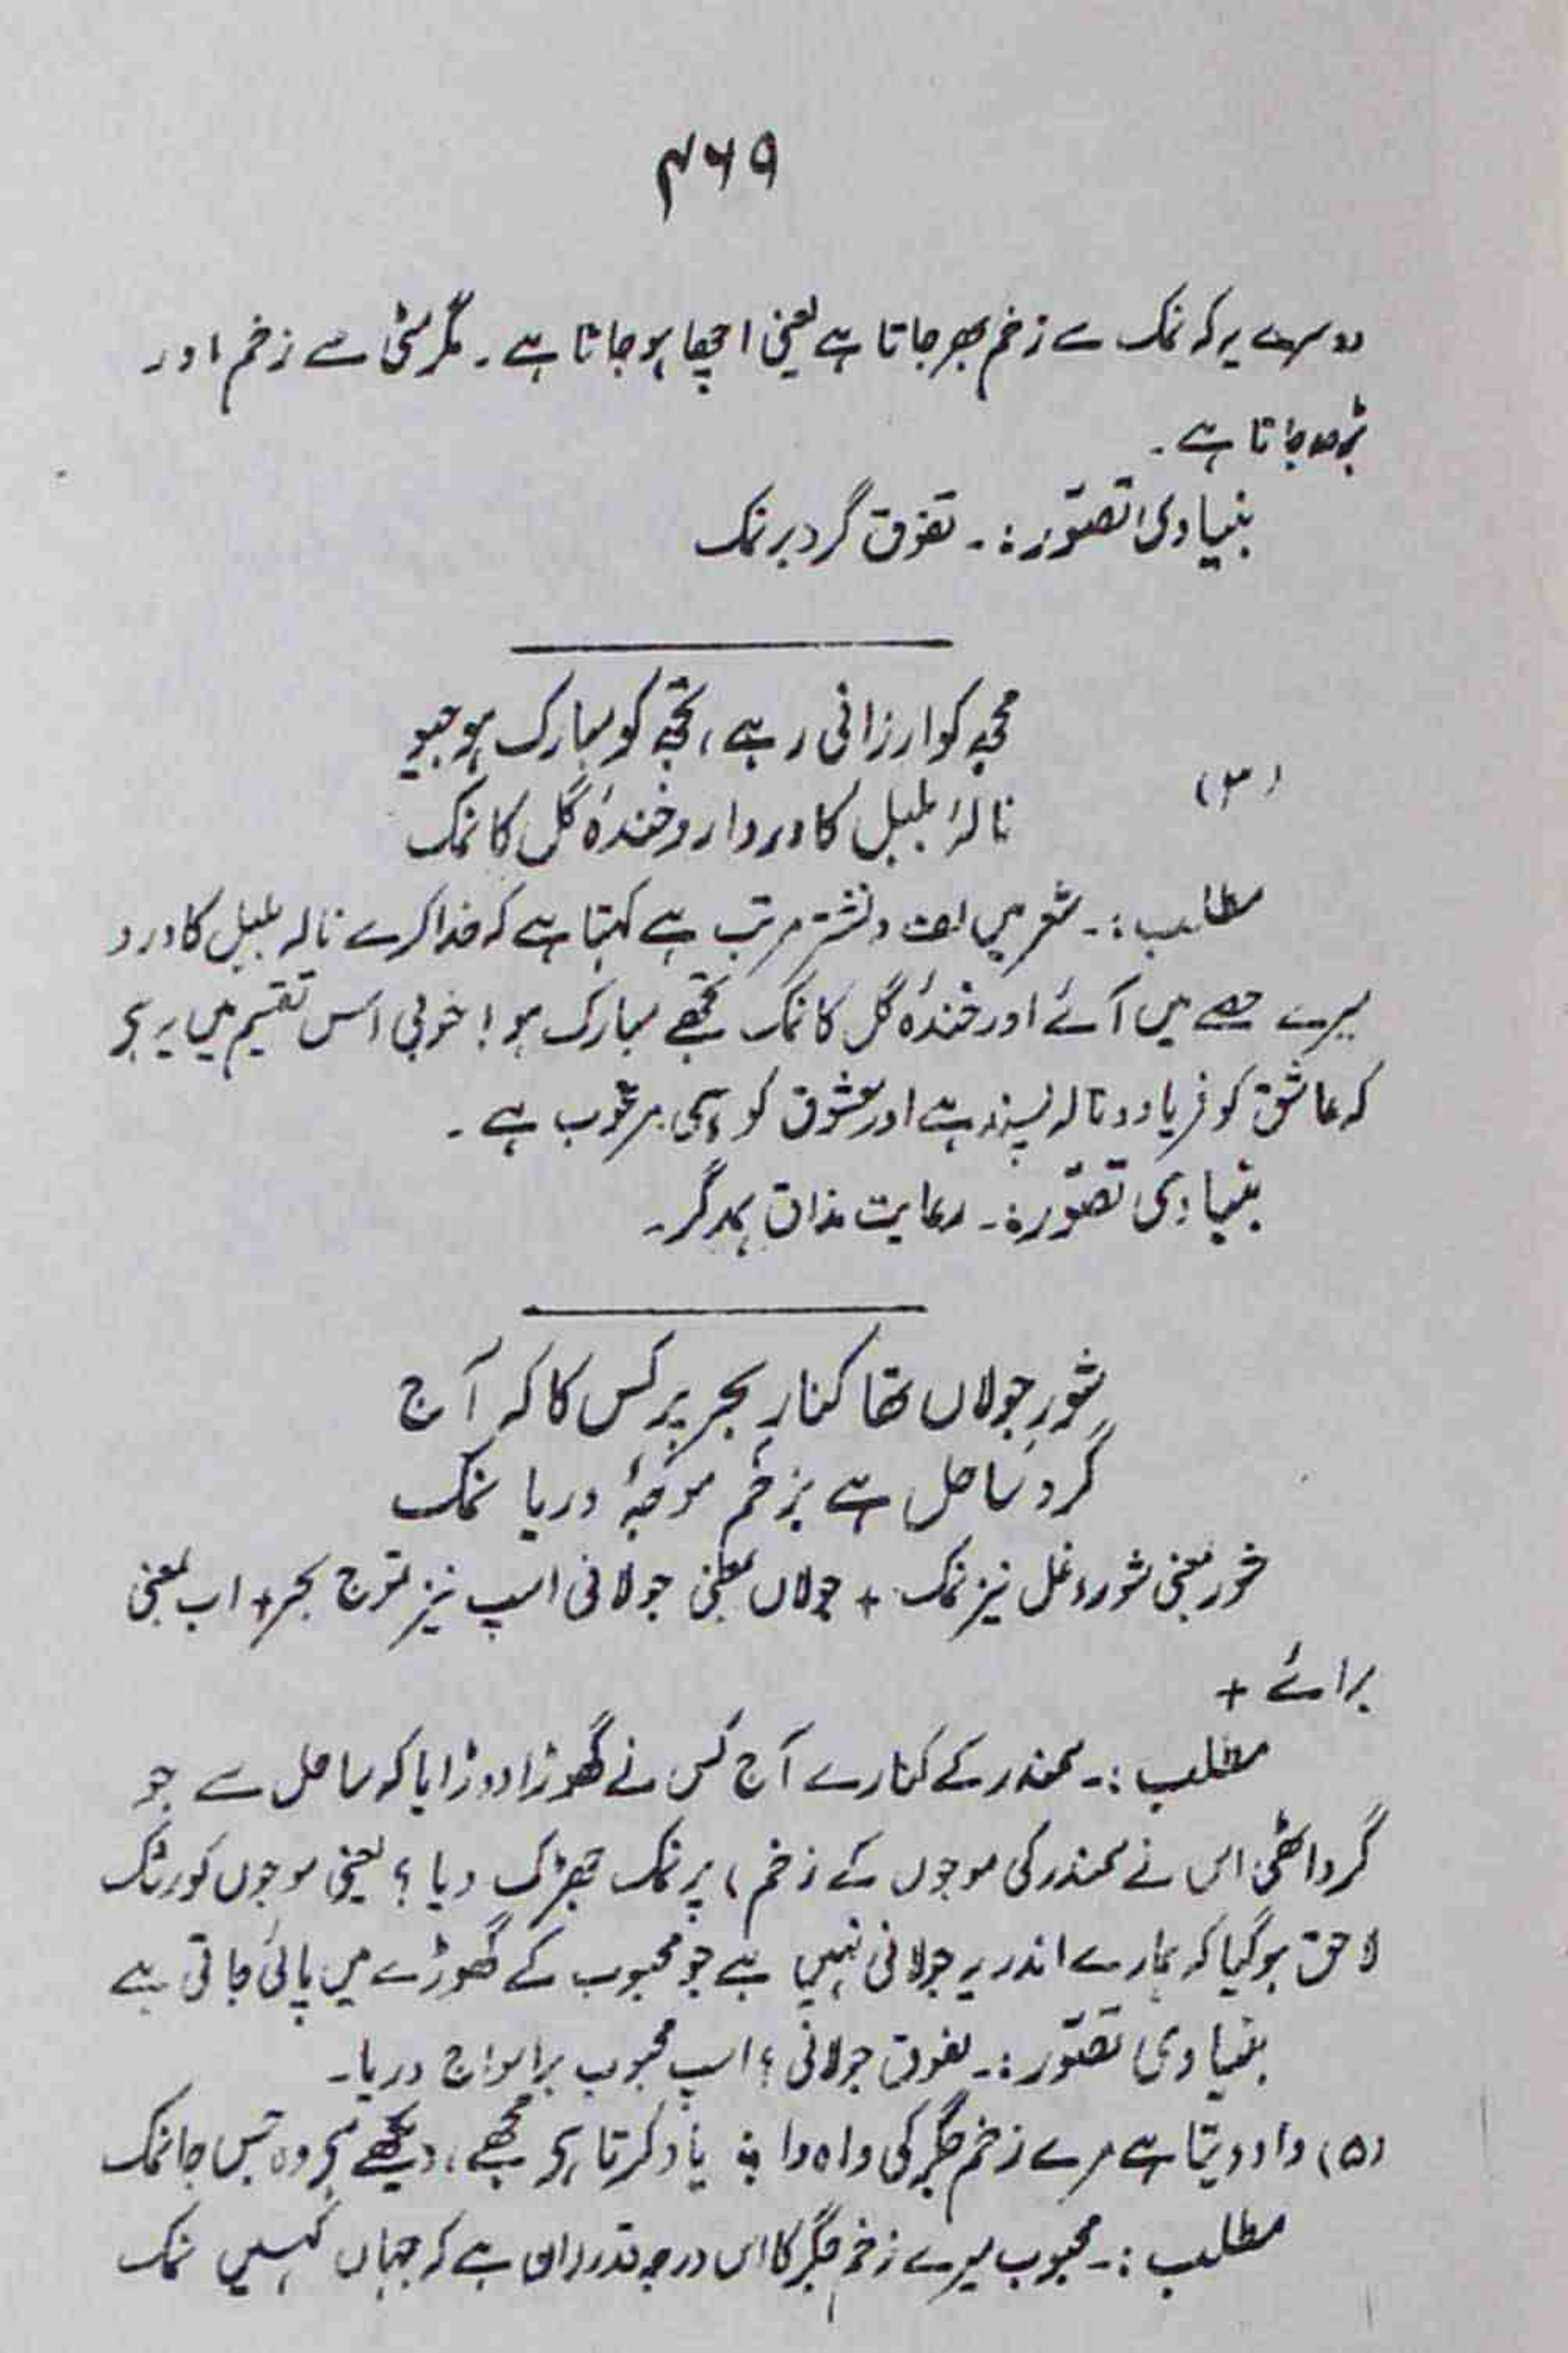 ۴۶۹
دوسرے یہ کہ نمک سے زخم بھر جاتا ہے یعنی اچھا ہو جاتا ہے۔ مگر مٹی سے زخم اور
بڑھ جاتا ہے۔
بنیادی تصوّر:۔ تفوق گرد بر نمک
مجھ کو ارزانی رہے، تجھ کو مبارک ہو جیو
(۳)
نالۂ بلبل کا درد اور خندۂ گل کا نمک
مطلب:۔ شعر میں لف و نشر مرتب ہے کہتا ہے کہ خدا کرے نالہ بلبل کا درد
میرے حصے میں آئے اور خندۂ گل کا نمک تجھے مبارک ہو! خوبی اس تقسیم میں یہ ہی
کہ عاشق کو فریاد و نالہ پسند ہے اور معشوق کو ہنسی مرغوب ہے۔
بنیادی تصوّر:۔ رعایت مذاق ہمدگر۔
شورِ جولاں تھا کنارِ بحر پر کس کا کہ آج
گردِ ساحل ہے بزخمِ موجۂ دریا نمک
شور بمعنی شور و غل نیز نمک + جولاں بمعنی جولانی اسپ نیز تموج بحر + اب بمعنی
برائے +
مطلب:۔ سمندر کے کنارے آج کس نے گھوڑا دوڑایا کہ ساحل سے جو
گرد اٹھی اس نے سمندر کی موجوں کے زخم، پر نمک چھڑک دیا؟ یعنی موجوں کو رشک
لاحق ہو گیا کہ ہمارے اندر یہ جولانی نہیں ہے جو محبوب کے گھوڑے میں پائی جاتی ہے
بنیادی تصوّر:۔ تفوق جولانی؛ اسپ محبوب بر امواج دریا۔
(۵) داد دیتا ہے مرے زخم جگر کی واہ وا ؞ یاد کرتا ہی مجھے، دیکھے ہی وہ جس جا نمک
مطلب:۔ محبوب میرے زخم جگر کا اس درجہ قدرداں ہے کہ جہاں کہیں نمک